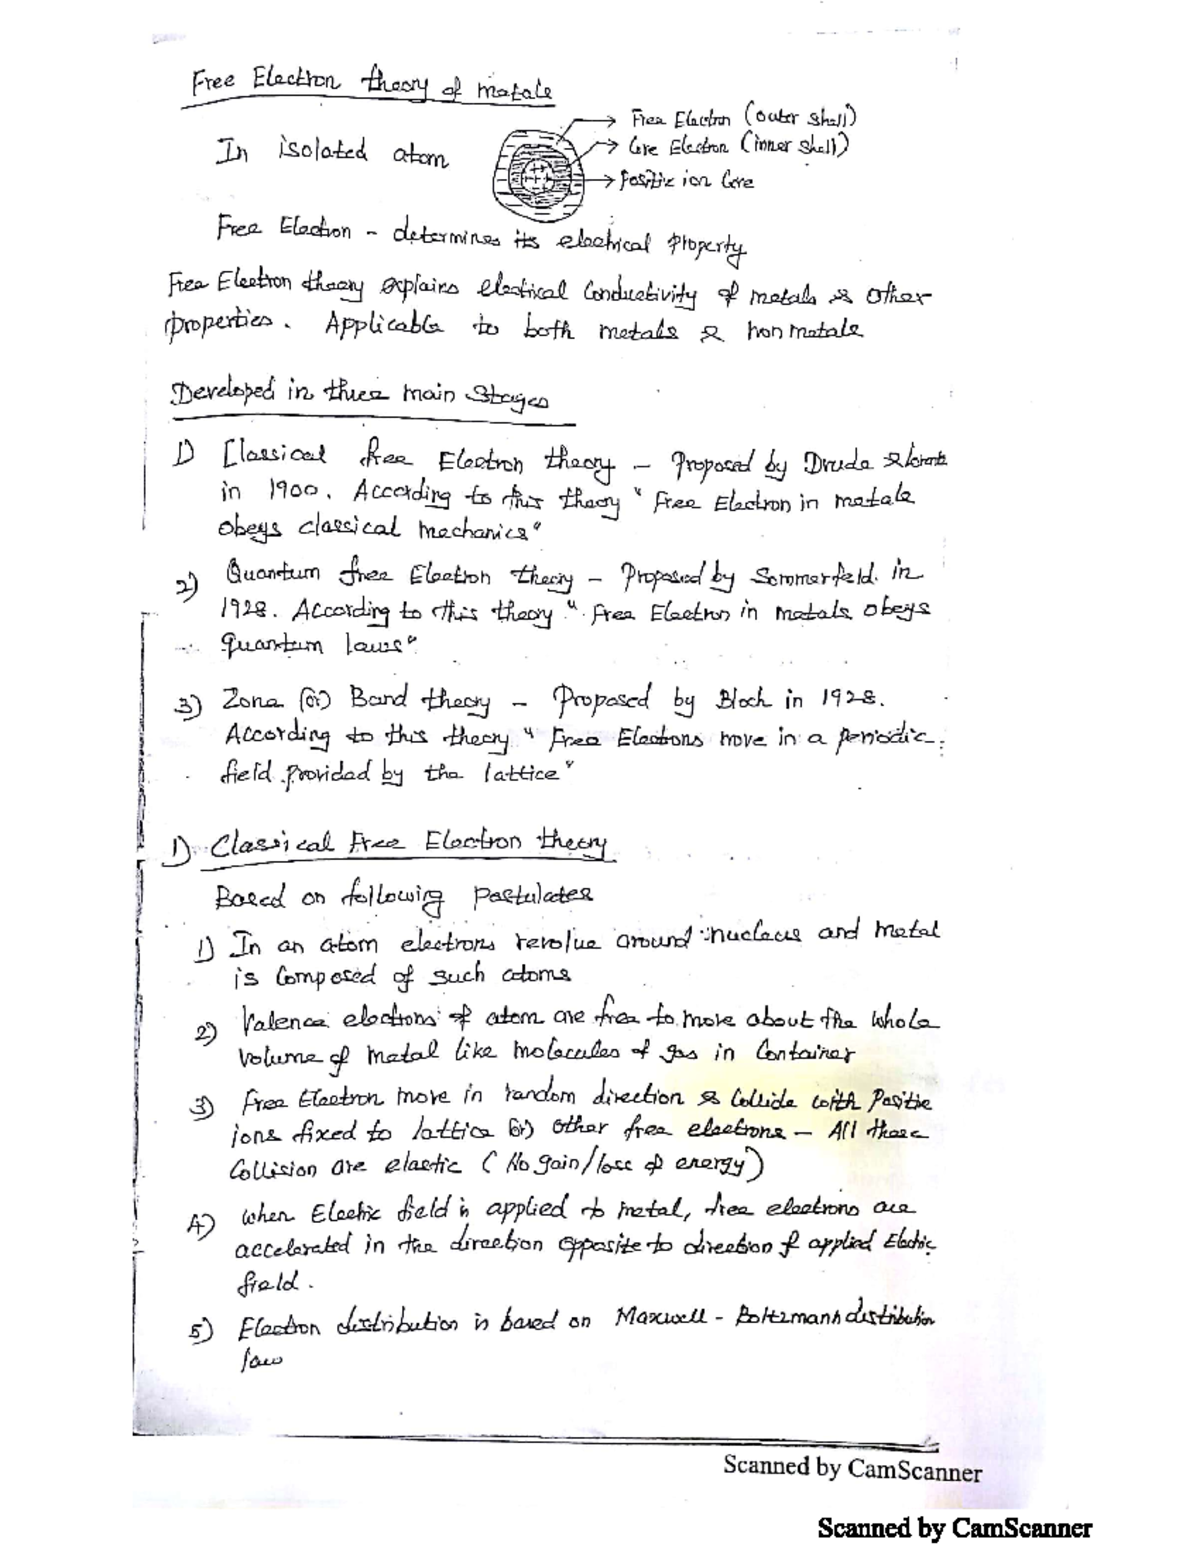 Free Electron theory of metals
In isolated atom
Free Electron (outer shell)
Core Electron (inner shell)
Positive ion Core
Free Electron - determines its electrical property
Free Electron theory explains electrical Conductivity of metals & Other
properties. Applicable to both metals & non metals
Developed in three main Stages
1) Classical free Electron theory - Proposed by Drude & lorentz
in 1900. According to this theory "Free Electron in metals
obeys classical mechanics"
2) Quantum free Electron theory - Proposed by Sommerfeld. in
1928. According to this theory "Free Electron in metals obeys
quantum laws"
3) Zone (or) Band theory - Proposed by Bloch in 1928.
According to this theory "Free Electrons move in a periodic
field provided by the lattice"
1) Classical Free Electron theory
Based on following postulates
1) In an atom electrons revolve around nucleus and metal
is Composed of such atoms
2) Valence electrons of atom are free to move about the whole
volume of metal like molecules of gas in Container
3) Free Electron move in random direction & Collide with Positive
ions fixed to lattice (or) other free electrons - All these
Collision are elastic (No gain/loss of energy)
4) When Electric field is applied to metal, free electrons are
accelerated in the direction opposite to direction of applied Electric
field.
5) Electron distribution is based on Maxwell - Boltzmann distribution
law
Scanned by CamScanner
Scanned by CamScanner